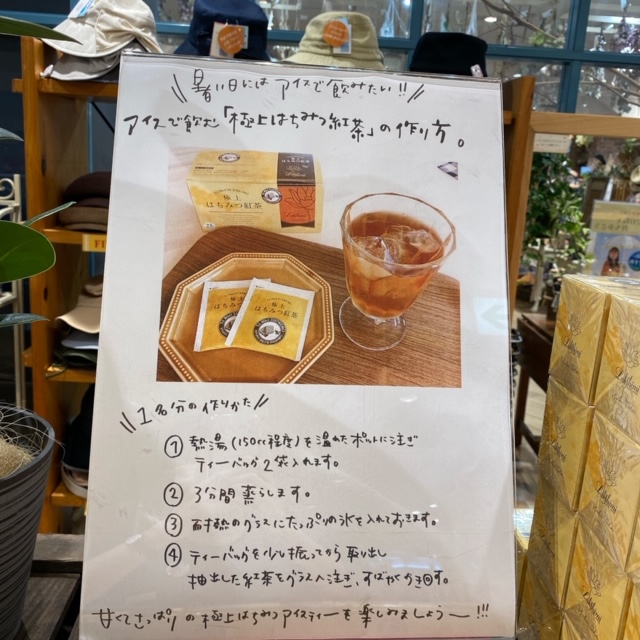 暑い日にはアイスで飲みたい!!
アイスで飲む「極上はちみつ紅茶」の作り方。
極上
はちみつ紅茶
極上
はちみつ紅茶
極上
はちみつ紅茶
1名分の作りかた
① 熱湯(150cc程度)を温めたポットに注ぎ
ティーバッグ2袋入れます。
② 3分間蒸らします。
③ 耐熱のグラスにたっぷりの氷を入れておきます。
④ ティーバッグを少し振ってから取り出し
抽出した紅茶をグラスへ注ぎ、すばやくかき回す。
甘くてさっぱりの極上はちみつアイスティーを楽しみましょう〜!!!